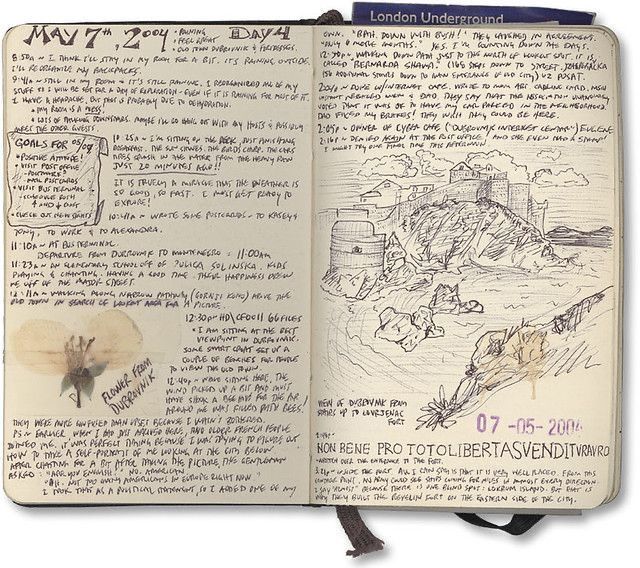 London Underground
MAY 7th, 2004
• RAINING
• FEEL GREAT
• OLD TOWN DUBROVNIK & FORTRESSES.
DAY 4
8:50A ~ I THINK I'LL STAY IN MY ROOM FOR A BIT. IT'S RAINING OUTSIDE.
I'LL REORGANIZE MY BACKPACKS.
STILL IN MY ROOM & IT'S STILL RAINING. I REORGANIZED ALL OF MY
STUFF SO I WILL BE SET FOR A DAY OF EXPLORATION - EVEN IF IT IS RAINING FOR MOST OF IT.
I HAVE A HEADACHE, BUT THIS IS PROBABLY DUE TO DEHYDRATION.
• MY ROOM IS A MESS.
• LOTS OF TALKING DOWNSTAIRS. MAYBE I'LL GO HANG OUT WITH MY HOSTS & POSSIBLY
MEET THE OTHER GUESTS.
GOALS FOR 05/07/04
• POSITIVE ATTITUDE!
• VISIT POST OFFICE
- POSTCARDS?
- MAIL POSTCARDS
• VISIT BUS TERMINAL
- SCHEDULE BOTH
• CHECK OUT NEW SIGHTS
10:25A ~ I'M SITTING ON THE DECK, JUST FINISHING
BREAKFAST. THE SUN SHINES. THE BIRDS CHIRP. THE CARS
TIRES SPLASH IN THE WATER FROM THE HEAVY RAIN
JUST 20 MINUTES AGO!!
IT IS TRULY A MIRACLE THAT THE WEATHER IS
SO GOOD, SO FAST. I MUST GET READY TO
EXPLORE!
10:41A ~ WROTE SOME POSTCARDS - TO KASEY &
TONY, TO WORK & TO ALEXANDRA.
11:10A ~ AT BUS TERMINAL.
DEPARTURE FROM DUBROVNIK TO MONTENEGRO = 11:00AM
11:23A ~ ON ELEMENTARY SCHOOL OFF OF ZULICA SOLINSKA. KIDS
PLAYING & CHANTING. HAVING A GOOD TIME. THEIR HAPPINESS DREW
ME OFF OF THE MAJOR STREET.
12:11A ~ WALKING ALONG NARROW PATHWAY (GORNJI KONO) ABOVE THE
OLD TOWN IN SEARCH OF LOOKOUT AREA FOR A PICTURE.
12:30P ~ HD\CF0011 66 FILES
• I AM SITTING AT THE BEST
VIEWPOINT IN DUBROVNIK.
SOME SMART CROAT SET UP A
COUPLE OF BENCHES FOR PEOPLE
TO VIEW THE OLD TOWN.
12:40P ~ WHILE SITTING HERE, THE
WIND PICKED UP A BIT AND MUST
HAVE SHOOK A BEE HIVE FOR THE AIR
AROUND ME WAS FILLED WITH BEES!
FLOWER FROM
DUBROVNIK
THEY WERE MORE CONFUSED THAN UPSET BECAUSE I WASN'T BOTHERED.
PS ~ EARLIER WHEN I HAD JUST ARRIVED HERE, AND OLDER FRENCH PEOPLE
JOINED ME, IT WAS PERFECT TIMING BECAUSE I WAS TRYING TO FIGURE OUT
HOW TO TAKE A SELF-PORTRAIT OF ME LOOKING AT THE CITY BELOW.
AFTER CHATTING FOR A BIT AFTER TAKING THE PICTURE, THE GENTLEMAN
ASKED: "ARE YOU ENGLISH?" NO. AMERICAN.
"AH. NOT TOO MANY AMERICANS IN EUROPE RIGHT NOW."
I TOOK THAT AS A POLITICAL STATEMENT, SO I ADDED ONE OF MY
OWN. "BAH. DOWN WITH BUSH!" THEY LAUGHED IN AGREEMENT.
"ONLY 6 MORE MONTHS." YES. I'M COUNTING DOWN THE DAYS.
WALKING DOWN PATH JUST TO THE NORTH OF LOOKOUT SPOT. IT IS
CALLED BERNARDA SHAWA. (166 STEPS DOWN TO STREET, ZAGREBAČKA
150 ADDITIONAL STAIRS DOWN TO MAIN ENTRANCE OF OLD CITY) UZ POSAT.
2:04P ~ DONE W/INTERNET CAFE. WROTE TO MOM RE: CALLING CARD.
VOTED THAT IT WAS OK TO HAVE MY CAR PARKED IN THE NEIGHBORHOOD.
DAD FIXED MY BRAKES! THEY WISH THEY COULD BE HERE.
2:05P ~ OWNER OF CYBER CAFE ("DUBROVNIK INTERNET CENTAR") EUGENE
2:16P ~ DENIED AGAIN AT THE POST OFFICE. AND SHE EVEN HAD A STAMP!
I MIGHT TRY ONE FINAL TIME THIS AFTERNOON.
VIEW OF DUBROVNIK FROM
STAIRS UP TO LOVRJENAC
FORT
07 -05- 2004
NON BENE PRO TOTO LIBERTAS VENDITUR AURO
WRITTEN OVER THE ENTRANCE TO THE FORT.
INSIDE THE FORT. ALL I CAN SAY IS THAT IT IS VERY WELL PLACED. FROM THIS
VANTAGE POINT, AN ARMY COULD SEE SHIPS COMING FOR MILES IN ALMOST EVERY DIRECTION.
I SAY "ALMOST" BECAUSE THERE IS ONE BLIND SPOT: LOKRUM ISLAND. BUT THAT IS
WHY THEY BUILT THE REVELIN FORT ON THE EASTERN SIDE OF THE CITY.